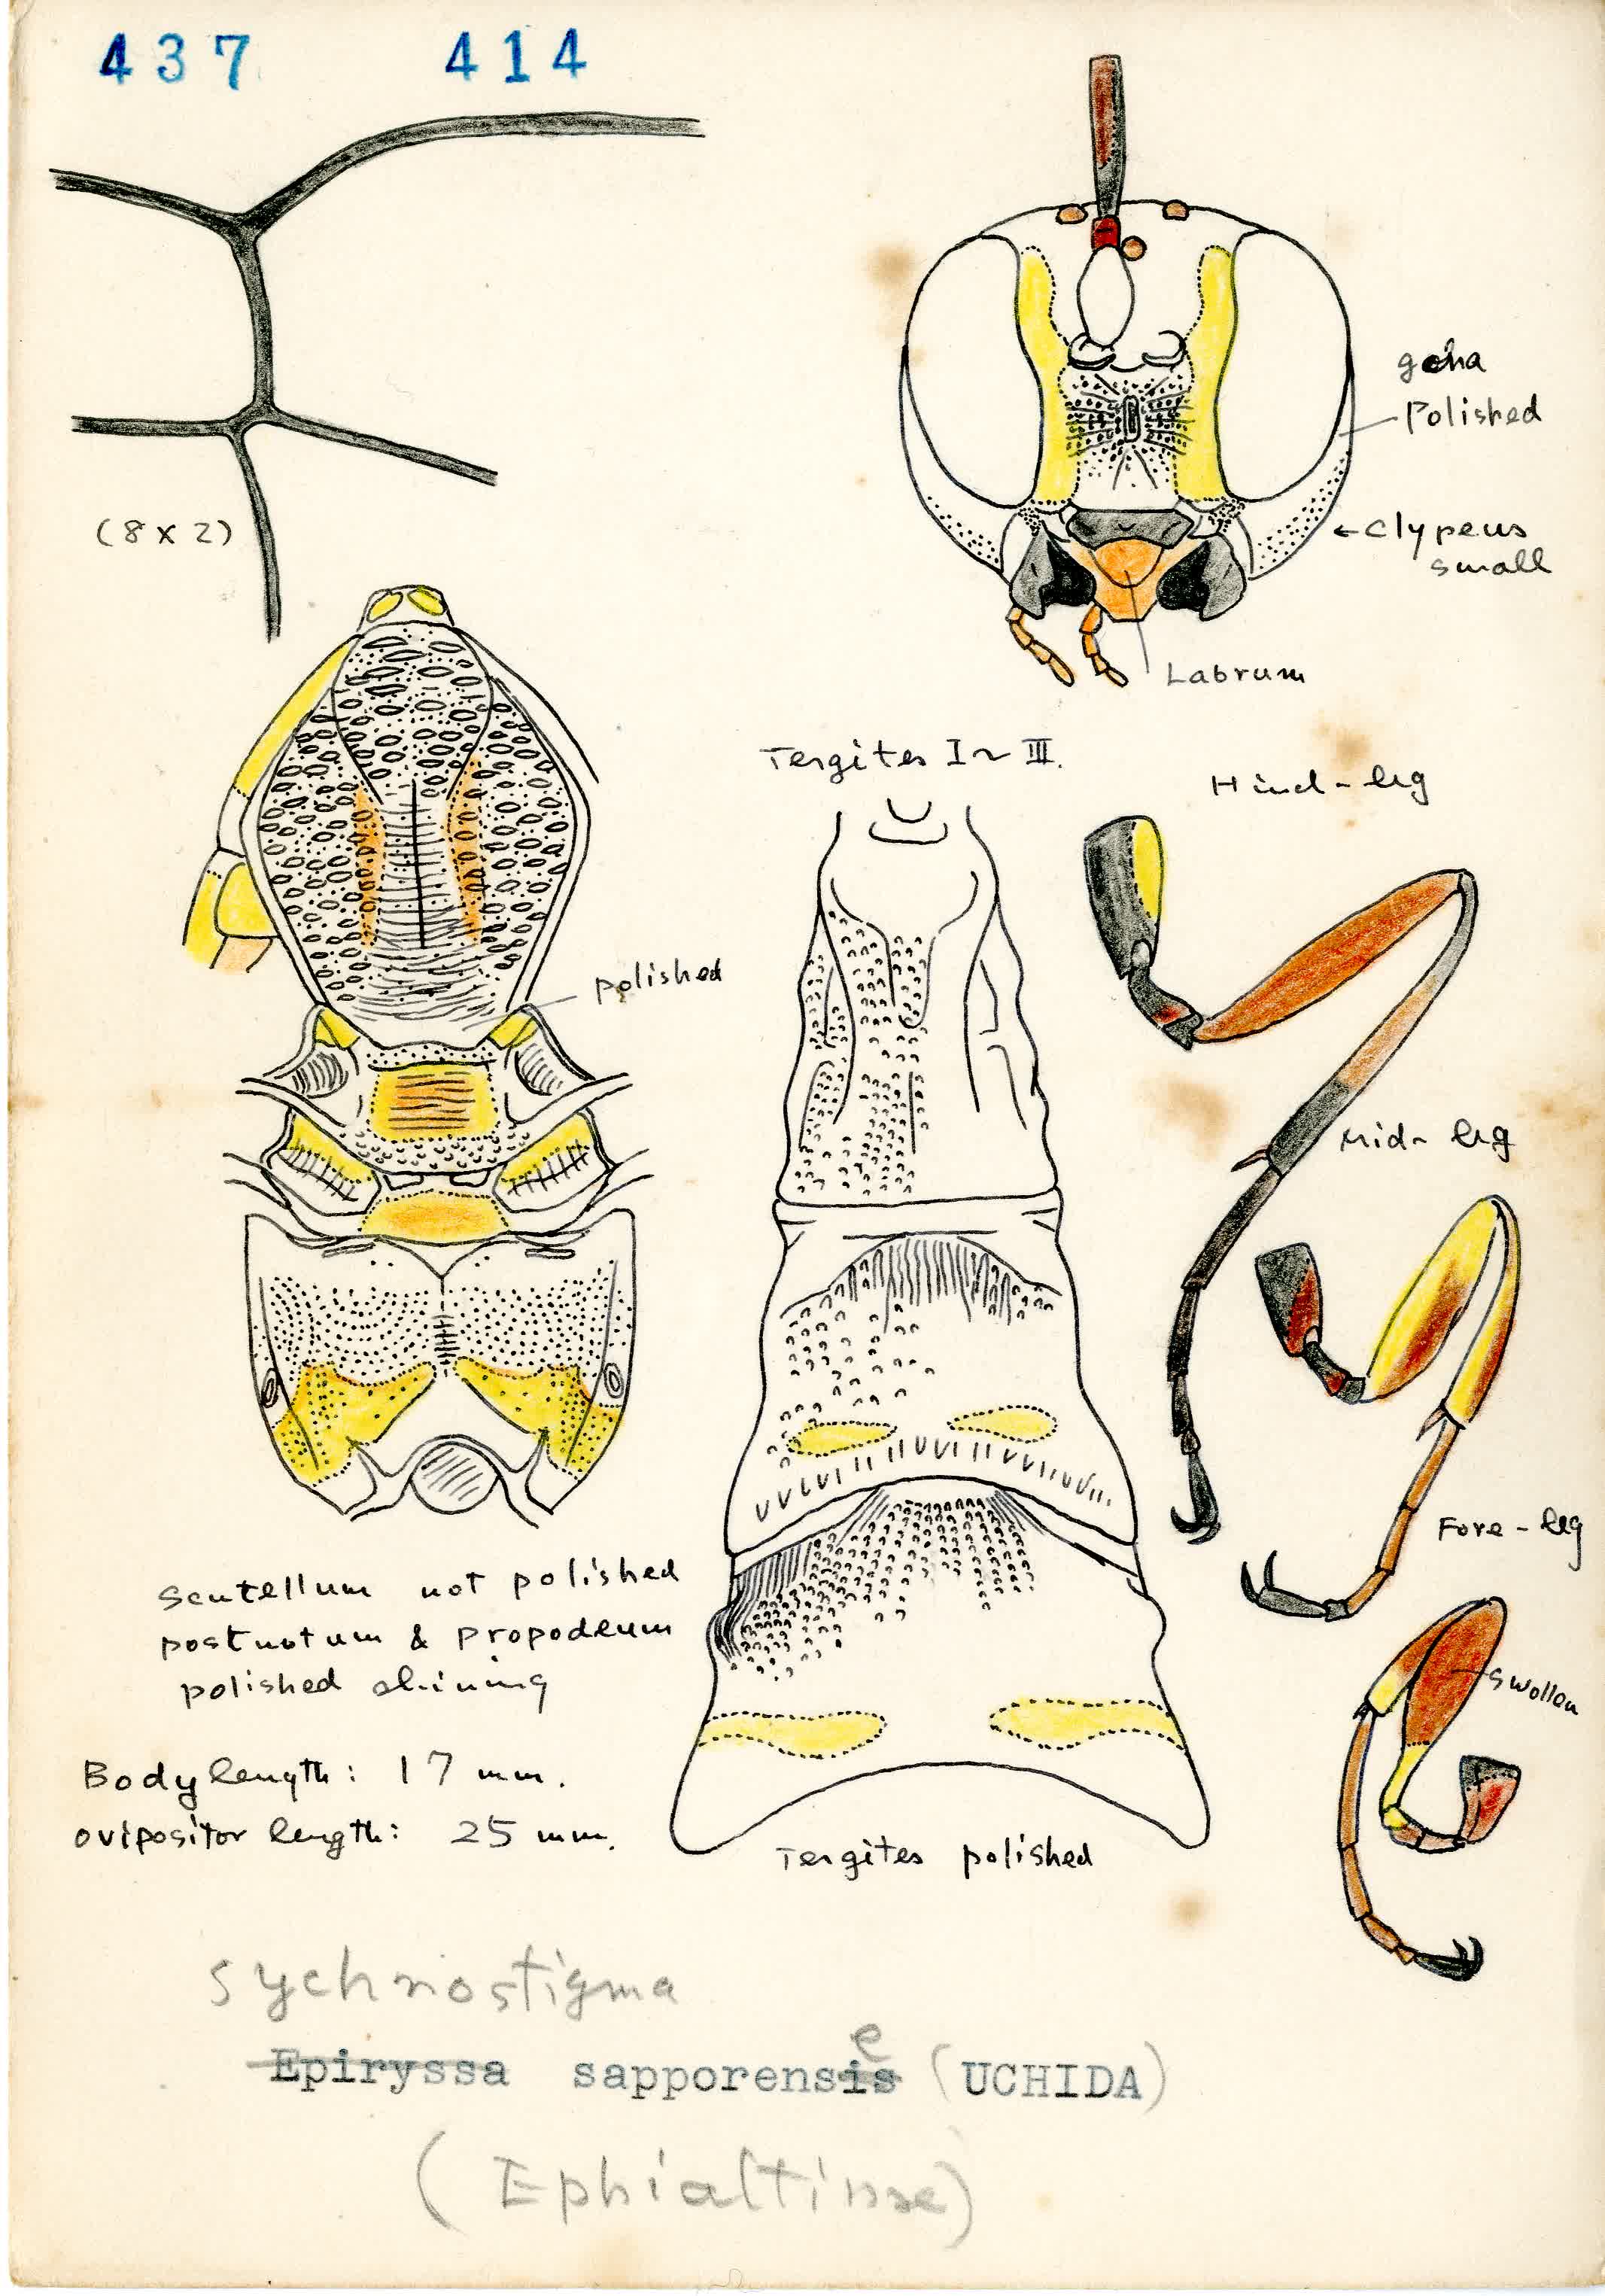 437 414
(8 x 2)
gena
Polished
←clypeus
small
Labrum
Tergites I~III.
Hind-leg
polished
Mid-leg
Fore-leg
swollen
scutellum not polished
postnotum & propodeum
polished shining
Body length: 17 mm.
ovipositor length: 25 mm.
Tergites polished
Sychnostigma
e
Epiryssa sapporensis (UCHIDA)
(Ephialtinae)